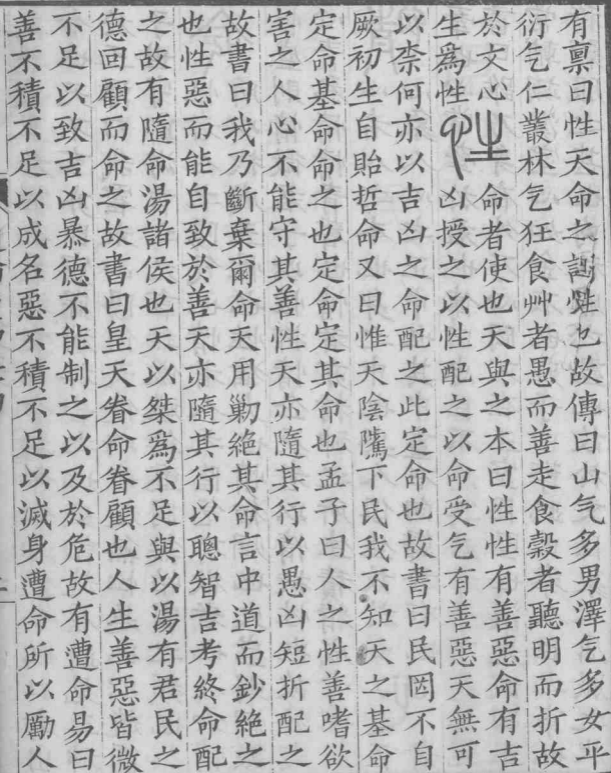 有禀曰性天命之謂性也故傳曰山气多男澤气多女平
衍气仁叢林气狂食艸者愚而善走食穀者聽明而折故
於文心
生爲性
性
命者使也天與之本曰性性有善惡命有吉
凶授之以性配之以命受气有善惡天無可
以柰何亦以吉凶之命配之此定命也故書曰民罔不自
厥初生自貽哲命又曰惟天陰騭下民我不知天之基命
定命基命命之也定命定其命也孟子曰人之性善嗜欲
害之人心不能守其善性天亦隨其行以愚凶短折配之
故書曰我乃斷棄爾命天用勦絕其命言中道而鈔絕之
也性惡而能自致於善天亦隨其行以聰智吉考終命配
之故有隨命湯諸侯也天以桀爲不足與以湯有君民之
德回顧而命之故書曰皇天眷命眷顧也人生善惡皆微
不足以致吉凶暴德不能制之以及於危故有遭命易曰
善不積不足以成名惡不積不足以滅身遭命所以勵人